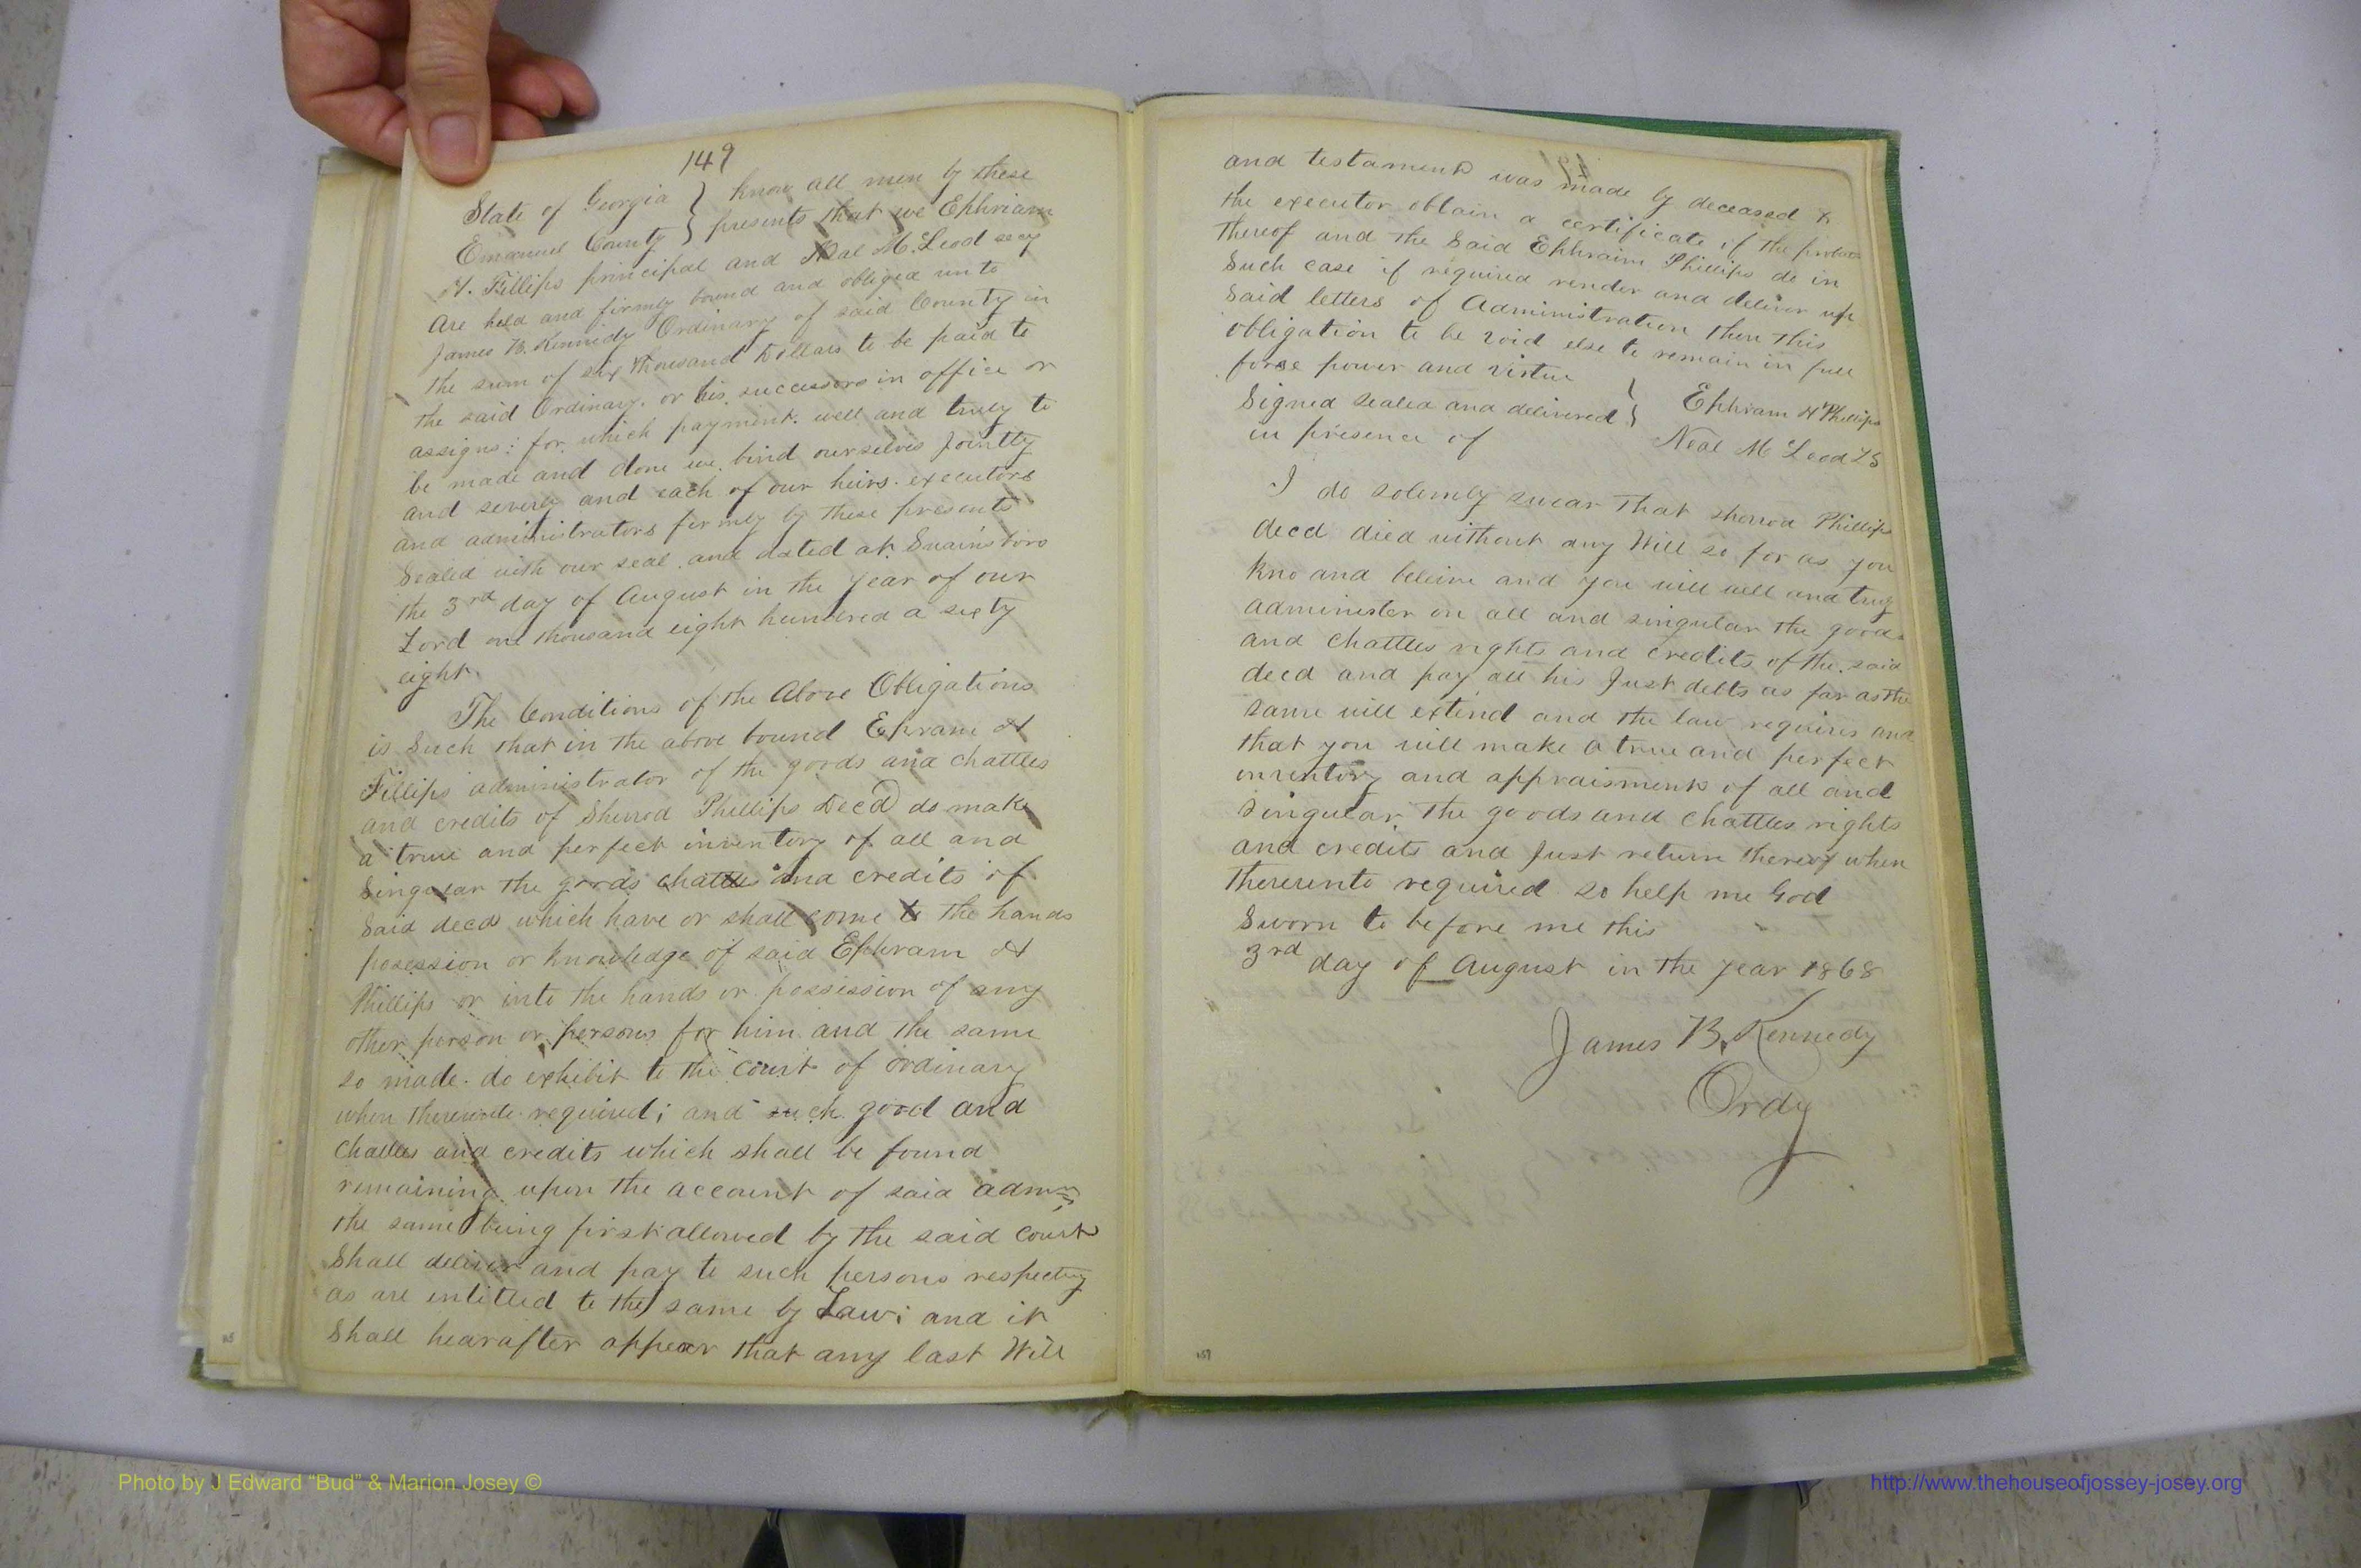 149
State of Georgia } know all men by these
Emanuel County } presents that we Ephriam
H. Fillips principal and Neal McLeod secy
Are held and firmly bound and obliged unto
James B. Kennedy Ordinary of said County in
the sum of six thousand Dollars to be paid to
the said Ordinary. or his successors in office or
assigns: for which payment. well and truly to
be made and done we. bind ourselves Jointly
and severly and each of our heirs. executors
and administrators firmly by these presents
Sealed with our seal. and dated at. Swainsboro
the 3rd day of August in the year of our
Lord one thousand eight hundred a sixty
eight.
The Conditions of the Above Obligations
is Such that in the above bound Ephram H
Fillips administrator of the goods and chattles
and credits of Sherrod Phillips Decd do make
a true and perfect inventory of all and
Singular the goods chattles and credits of
Said decd which have or shall come to the hands
posession or knowledge of said Ephram H
Phillips or into the hands or possission of any
other person or persons for him and the same
so made. do exhibit to the court of ordinary
when thereunto required; and such good and
Chattles and credits which shall be found
remaining upon the account of said admr
the same being first allowed by the said court
Shall deliver and pay to such persons respecting
as are entitled to the same by Law; and it
Shall hearafter appear that any last Will
and testament was made by deceased &
the executor obtain a certificate of the probate
thereof and the Said Ephraim Phillips do in
Such case if required render and deliver up
Said letters of Administration then this
obligation to be void else to remain in full
forse power and virtue
Signed sealed and delivered } Ephram H Phillips
in presence of Neal McLeod LS
I do solemly swear that sherrod Phillips
decd died without any Will so far as you
kno and beleive and you will well and truly
administer on all and singular the goods
and chattles rights and credits of the said
decd and pay all his Just debts as far as the
same will extend and the law requires and
that you will make a true and perfect
inventory and appraisment of all and
Singular the goods and chattles rights
and credits and Just return thereof when
thereunto required so help me God
Sworn to before me this
3rd day of August in the year 1868
James B. Kennedy
Ordy
157
Photo by J Edward “Bud” & Marion Josey ©
http://www.thehouseofjossey-josey.org